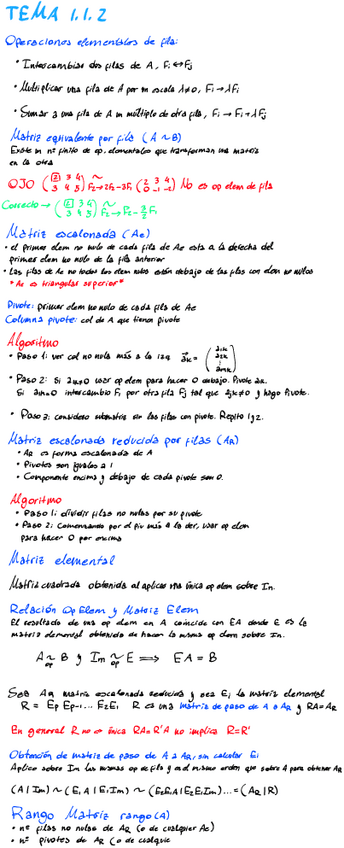 TEMA 1.1.2
Operaciones elementales de fila:
• Intercambiar dos filas de A, Fi ↔ Fj
• Multiplicar una fila de A por un escala λ≠0, Fi → λFi
• Sumar a una fila de A un múltiplo de otra fila, Fi → Fi + λFj
Matriz equivalente por fila (A ~ B)
Existe un nº finito de op. elementales que transforman una matriz
en la otra
OJO (2 3 4 / 3 4 5) ~ F2→2F2-3F1 (2 3 4 / 0 -1 -2) No es op elem de fila
Correcto → (2 3 4 / 3 4 5) ~ F2→F2-3/2F1
Matriz escalonada (Ae)
• el primer elem no nulo de cada fila de Ae esta a la derecha del
primer elem no nulo de la fila anterior
• Las filas de Ae no todos los elem nulos están debajo de las filas con elem no nulos
*Ae es triangular superior*
Pivote: primer elem no nulo de cada fila de Ae
Columna pivote: col de A que tienen pivote
Algoritmo
• Paso 1: ver col no nula más a la izq
• Paso 2: Si a1k≠0 usar op elem para hacer 0 debajo. Pivote a1k.
Si a1k=0 intercambio F1 por otra fila Fj tal que ajk≠0 y hago Pivote.
• Paso 3: considero submatriz sin las filas con pivote. Repito 1 y 2.
Matriz escalonada reducida por filas (AR)
• AR es forma escalonada de A
• Pivotes son iguales a 1
• Componente encima y debajo de cada pivote son 0.
Algoritmo
• Paso 1: dividir filas no nulas por su pivote
• Paso 2: Comenzando por el piv más a la der, usar op elem
para hacer 0 por encima
Matriz elemental
Matriz cuadrada obtenida al aplicar una única op elem sobre In.
Relación Op Elem y Matriz Elem
El resultado de una op elem en A coincide con EA donde E es la
matriz elemental obtenida de hacer la misma op elem sobre Im.
A ~op B y Im ~op E ⟹ EA = B
Sea AR matriz escalonada reducida y sea Ei la matriz elemental
R = Ep Ep-1 ... E2E1 R es una matriz de paso de A a AR y RA=AR
En general R no es única RA=R'A no implica R=R'
Obtención de matriz de paso de A a AR, sin calcular Ei
Aplico sobre Im las mismas op de fila y en el mismo orden que sobre A para obtener AR
(A | Im) ~ (E1A | E1Im) ~ (E2E1A | E2E1Im) ... = (AR | R)
Rango Matriz rango(A)
• nº filas no nulas de AR (o de cualquier Ae)
• nº pivotes de AR (o de cualquie